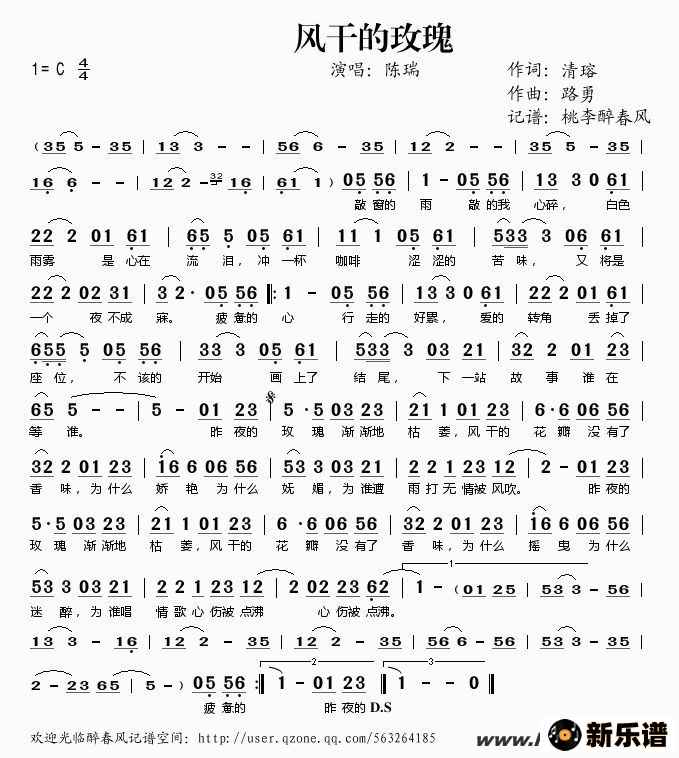 风干的玫瑰
1= C 4/4
演唱：陈瑞
作词：清瑢
作曲：路勇
记谱：桃李醉春风
( 35 5 - 35 | 13 3 - | 56 6 - 35 | 12 2 - | 35 5 - 35 |
16 6 - | 12 2 - 32 16 | 61 1 ) 05 56 | 1 - 05 56 | 13 3 0 61 |
敲窗的 雨 敲 的我 心碎， 白色
22 2 01 61 | 65 5 05 61 | 11 1 05 61 | 533 3 06 61 |
雨雾 是 心在 流 泪，冲 一杯 咖啡 涩 涩的 苦 味， 又 将是
22 2 02 31 | 32· 05 56 ‖: 1 - 05 56 | 133 0 61 | 22 2 01 61 |
一个 夜 不成 寐。 疲 惫的 心 行 走的 好累， 爱的 转角 丢 掉了
655 5 05 56 | 33 3 05 61 | 533 3 03 21 | 32 2 01 23 |
座 位， 不 该的 开始 画 上了 结 尾， 下 一站 故 事 谁 在
65 5 - - | 5 - 01 23 | 5 ·5 03 23 | 21 1 01 23 | 6 ·6 06 56 |
等 谁。 昨 夜的 玫 瑰 渐 渐地 枯 萎，风 干的 花 瓣 没 有了
32 2 01 23 | 16 6 06 56 | 53 3 03 21 | 22 1 23 12 | 2 - 01 23 |
香 味，为 什么 娇 艳 为 什么 妩 媚，为 谁遭 雨 打 无 情被 风吹。 昨 夜的
5 ·5 03 23 | 21 1 01 23 | 6 ·6 06 56 | 32 2 01 23 | 16 6 06 56 |
玫 瑰 渐 渐地 枯 萎，风 干的 花 瓣 没 有了 香 味，为 什么 摇 曳 为 什么
53 3 03 21 | 22 1 23 12 | 2 02 23 62 | 1 - (01 25 | 53 3 - 56 |
1
迷 醉，为 谁唱 情 歌 心 伤被 点沸 心 伤被 点沸。
13 3 - 16 | 12 2 - 35 | 12 2 - 35 | 56 6 - 56 | 53 3 - 35 |
2 - 23 65 | 5 - ) 05 56 :‖ 1 - 01 23 ‖ 1 - - 0 ‖
2
3
疲 惫的 昨 夜的 D.S
欢迎光临醉春风记谱空间：http://user.qzone.qq.com/563264185
www.
新乐谱